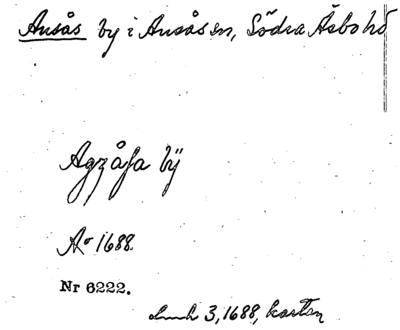 Ausås by i Ausås sn, Södra Åsbo hd
Agzåſa bÿ
Aº 1688.
Nr 6222.
3, 1688, kartan